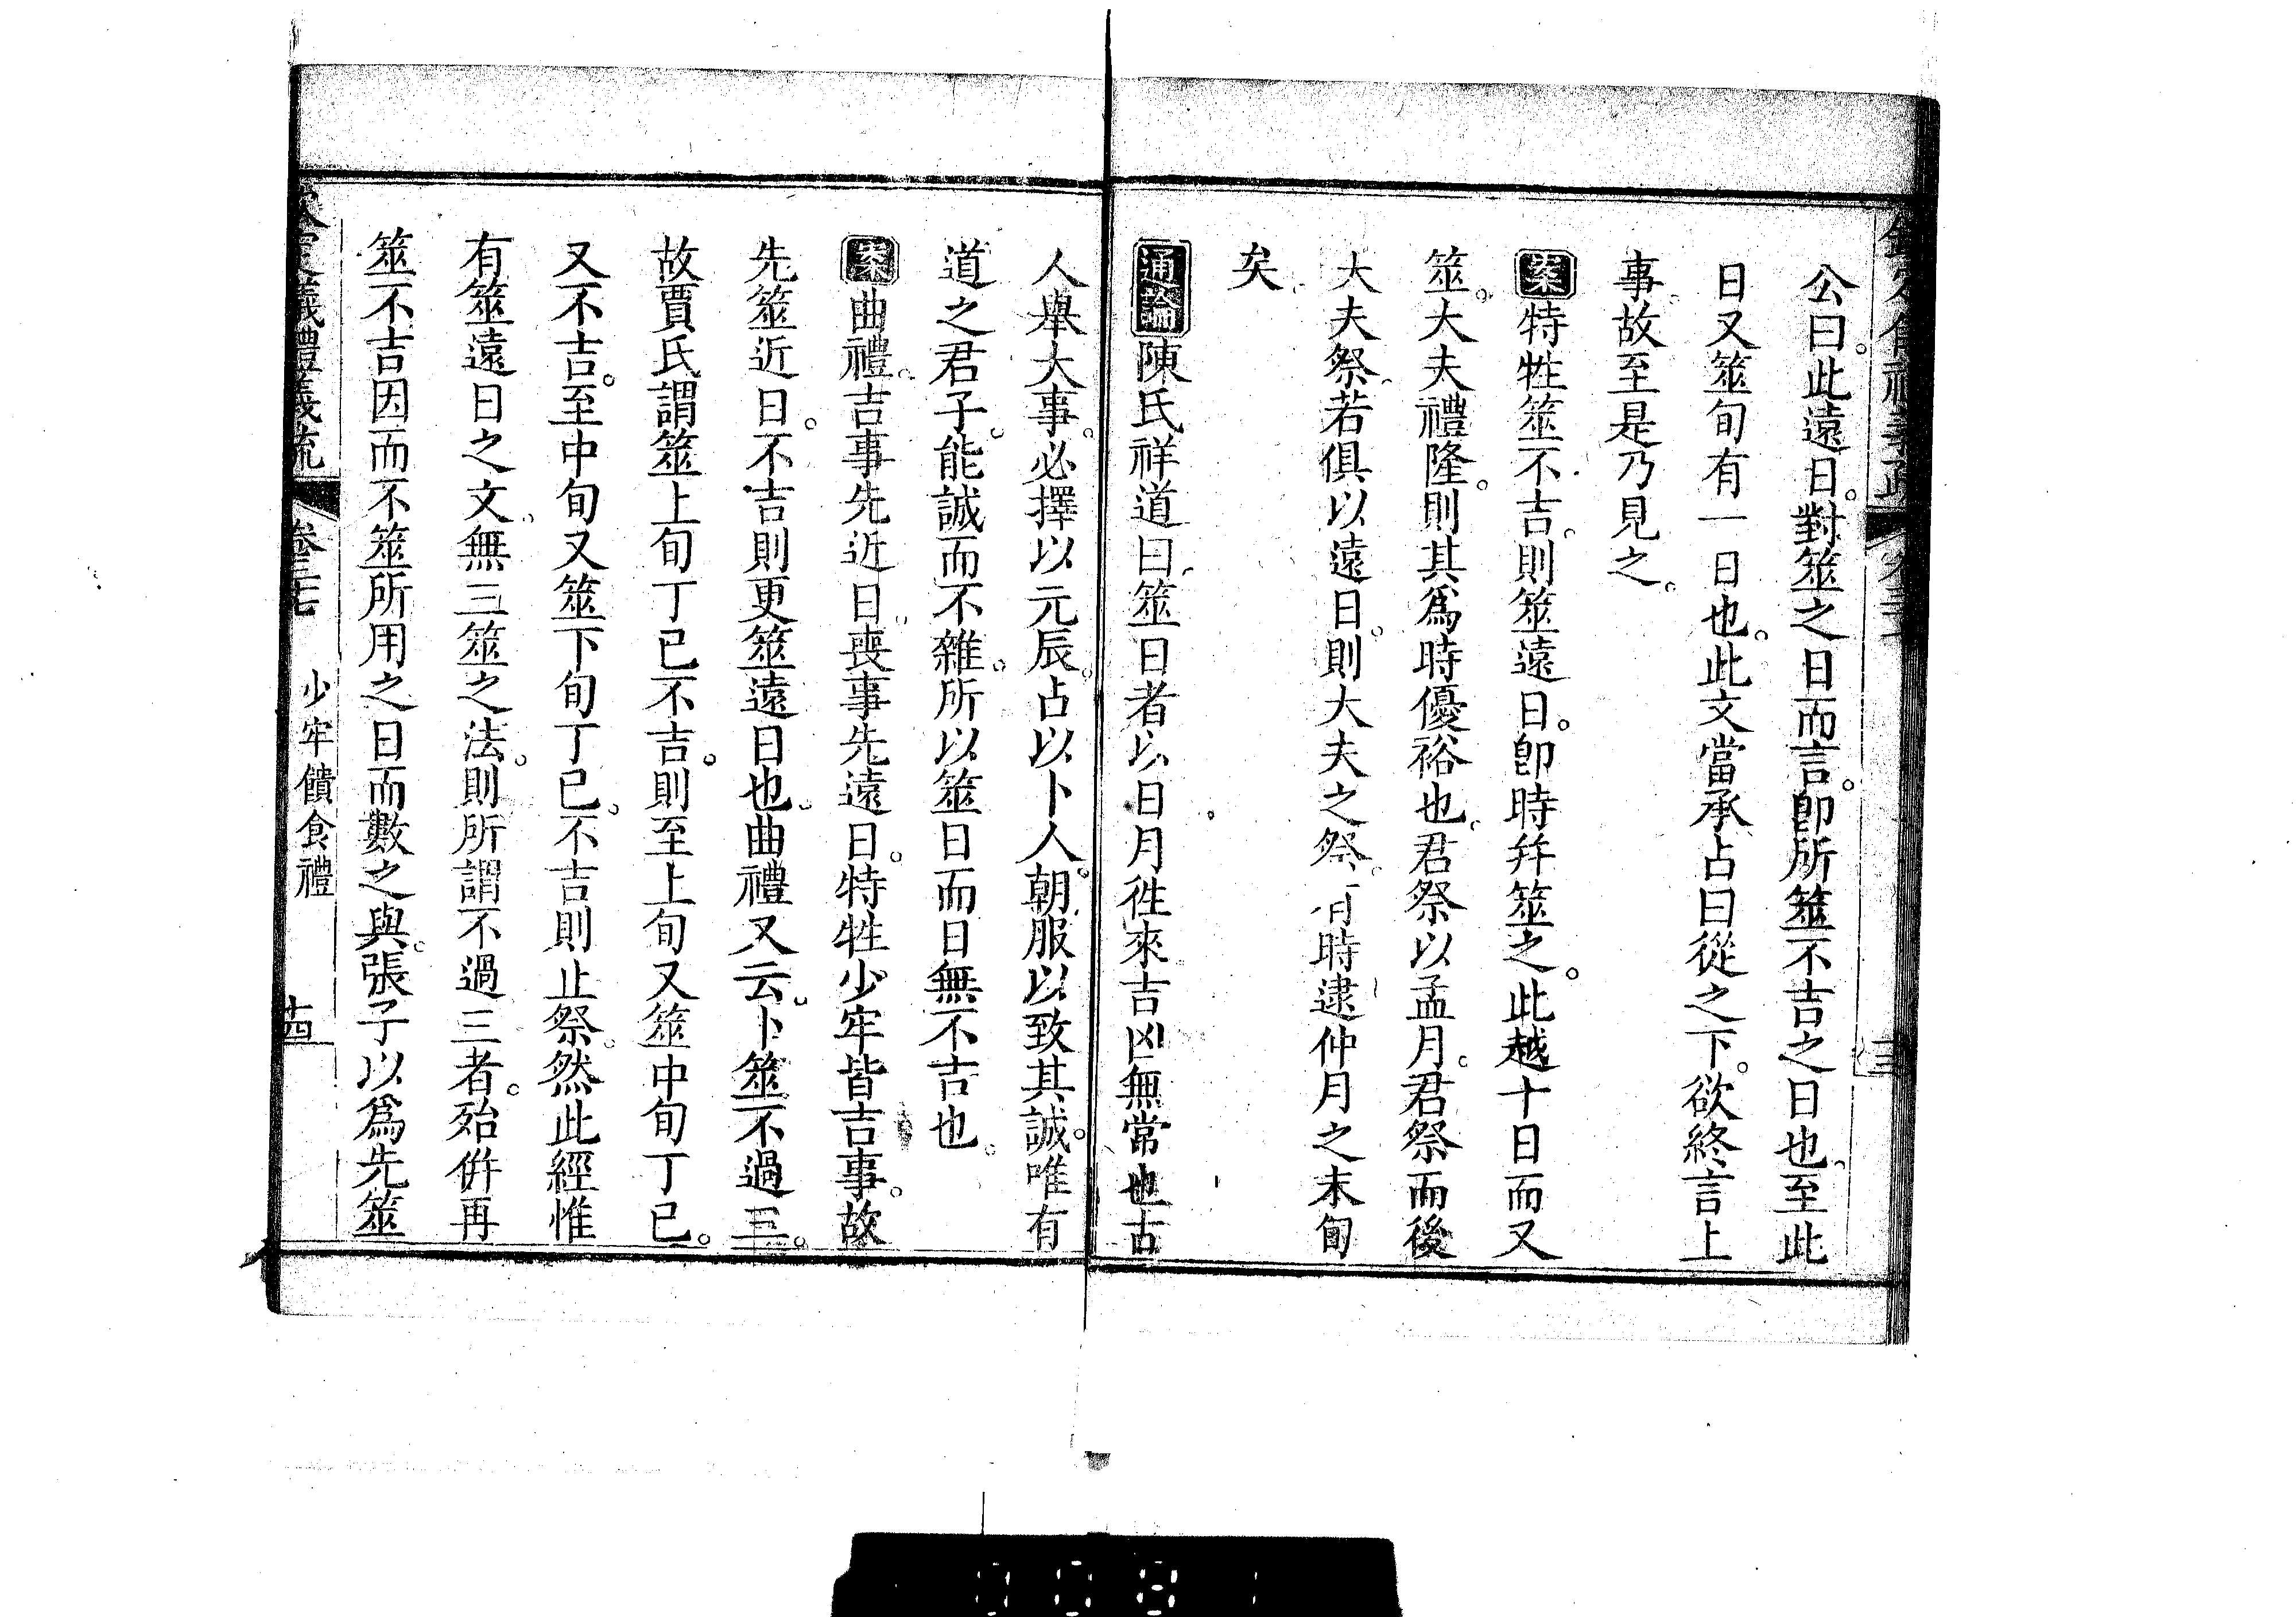 公曰。此遠日。對筮之日而言。卽所筮不吉之日也。至此
日又筮旬有一日也。此文當承占曰從之下。欲終言上
事。故至是乃見之。
案特牲筮不吉。則筮遠日。卽時幷筮之。此越十日而又
筮。大夫禮隆。則其爲時優裕也。君祭以孟月。君祭而後
大夫祭。若俱以遠日。則大夫之祭。有時逮仲月之末旬
矣。
通論陳氏祥道曰。筮日者以日月徃來吉凶無常也古
人舉大事。必擇以元辰。占以卜人。朝服以致其誠。唯有
道之君子。能誠而不雜。所以筮日而日無不吉也。
案曲禮。吉事先近日。喪事先遠日。特牲少牢皆吉事。故
先筮近日。不吉則更筮遠日也。曲禮又云。卜筮不過三。
故賈氏謂筮上旬丁已不吉。則至上旬又筮中旬丁已。
又不吉。至中旬又筮下旬丁已。不吉則止祭。然此經惟
有筮遠日之文。無三筮之法。則所謂不過三者。殆倂再
筮不吉因而不筮所用之日而數之與。張子以爲先筮
欽定儀禮義疏 卷三七 少牢饋食禮 十四